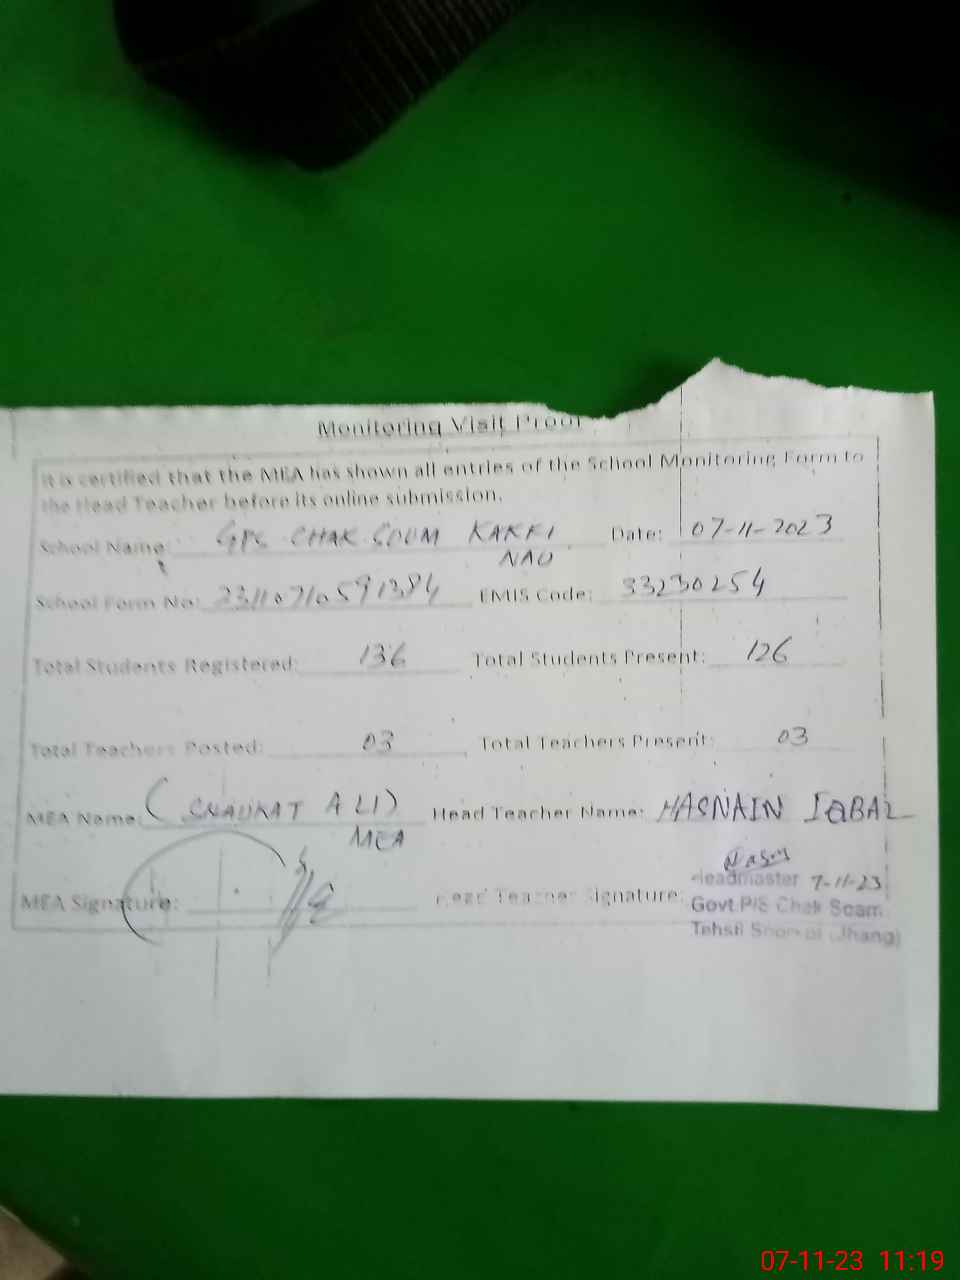 Monitoring Visit Proof
It is certified that the MEA has shown all entries of the School Monitoring Form to
the Head Teacher before its online submission.
School Name: GPS CHAK SOUM KAKKI NAU Date: 07-11-2023
School Form No: 23110710591384 EMIS Code: 33230254
Total Students Registered: 136 Total Students Present: 126
Total Teachers Posted: 03 Total Teachers Present: 03
MEA Name: (SHAUKAT ALI) Head Teacher Name: HASNAIN IQBAL
MEA
MEA Signature: Head Teacher Signature:
Headmaster 7-11-23
Govt.P/S Chak Soam
Tehsil (Jhang)
07-11-23 11:19